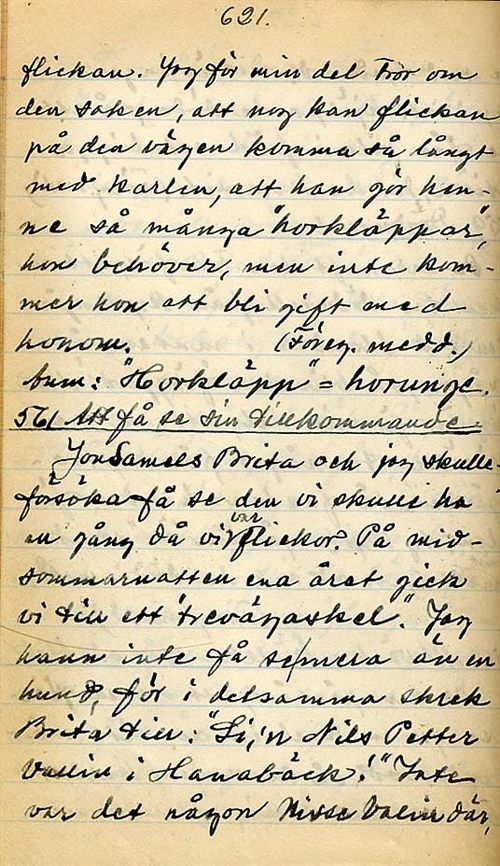 621.
flickan. Jag för min del tror om
den saken, att nog kan flickan
på den vägen komma så långt
med karlen, att han gör hen-
ne så många "horkläppar",
hon behöver, men inte kom-
mer hon att bli gift med
honom. (Föreg. medd.)
Anm: "Horkläpp" = horunge.
561 Att få se sin tillkommande.
Jon Samels Brita och jag skulle
försöka få se den vi skulle ha
en gång då vi var flickor. På mid-
sommarnatten ena året gick
vi till ett "trevägaskel". Jag
hann inte få se mera än en
hund, för i detsamma skrek
Brita till: "Si, 'n Nils Petter
Vallin i Hanabäck!" Inte
var det någon Nisse Valin där,